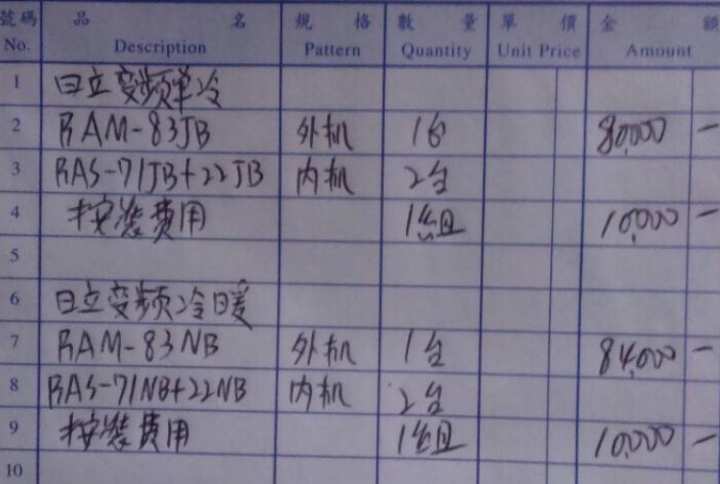 號碼 品名 規格 數量 單價 金額
No. Description Pattern Quantity Unit Price Amount
1 日立变频单冷
2 RAM-83JB 外机 1台 80,000 -
3 RAS-71JB+22JB 内机 2台
4 按装費用 1組 10,000 -
5
6 日立变频冷暖
7 RAM-83NB 外机 1台 84,000 -
8 RAS-71NB+22NB 内机 2台
9 按装費用 1組 10,000 -
10